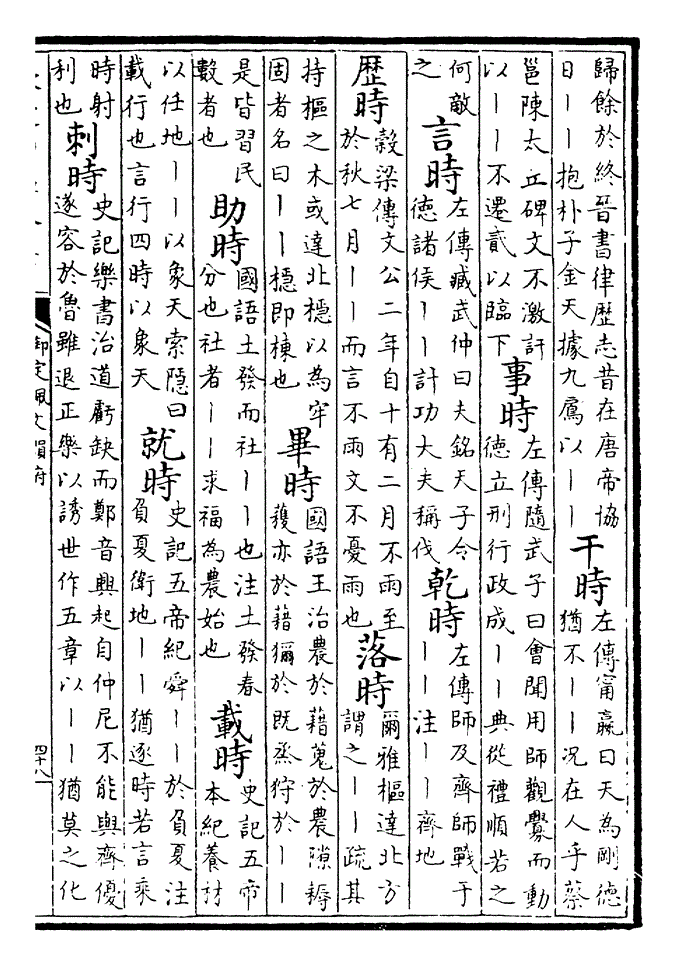 歸餘於終晉書律歷志昔在唐帝協
日丨丨抱朴子金天據九鳸以丨丨
干時
左傳甯嬴曰天為剛德
猶不丨丨况在人乎蔡
邕陳太丘碑文不激訐
以丨丨不遷貳以臨下
事時
左傳隨武子曰會聞用師觀釁而動
德立刑行政成丨丨典從禮順若之
何敵
之
言時
左傳臧武仲曰夫銘天子令
德諸侯丨丨計功大夫稱伐
乾時
左傳師及齊師戰于
丨丨注丨丨齊地
歷時
穀梁傳文公二年自十有二月不雨至
於秋七月丨丨而言不雨文不憂雨也
落時
爾雅樞達北方
謂之丨丨疏其
持樞之木或達北檼以為牢
固者名曰丨丨檼即棟也
畢時
國語王治農於藉蒐於農隙耨
穫亦於藉獮於既烝狩於丨丨
是皆習民
數者也
助時
國語土發而社丨丨也注土發春
分也社者丨丨求福為農始也
載時
史記五帝
本紀養材
以任地丨丨以象天索隱曰
載行也言行四時以象天
就時
史記五帝紀舜丨丨於負夏注
負夏衛地丨丨猶逐時若言乘
時射
利也
刺時
史記樂書治道虧缺而鄭音興起自仲尼不能與齊優
遂容於魯雖退正樂以誘世作五章以丨丨猶莫之化
御定佩文韻府
四十八